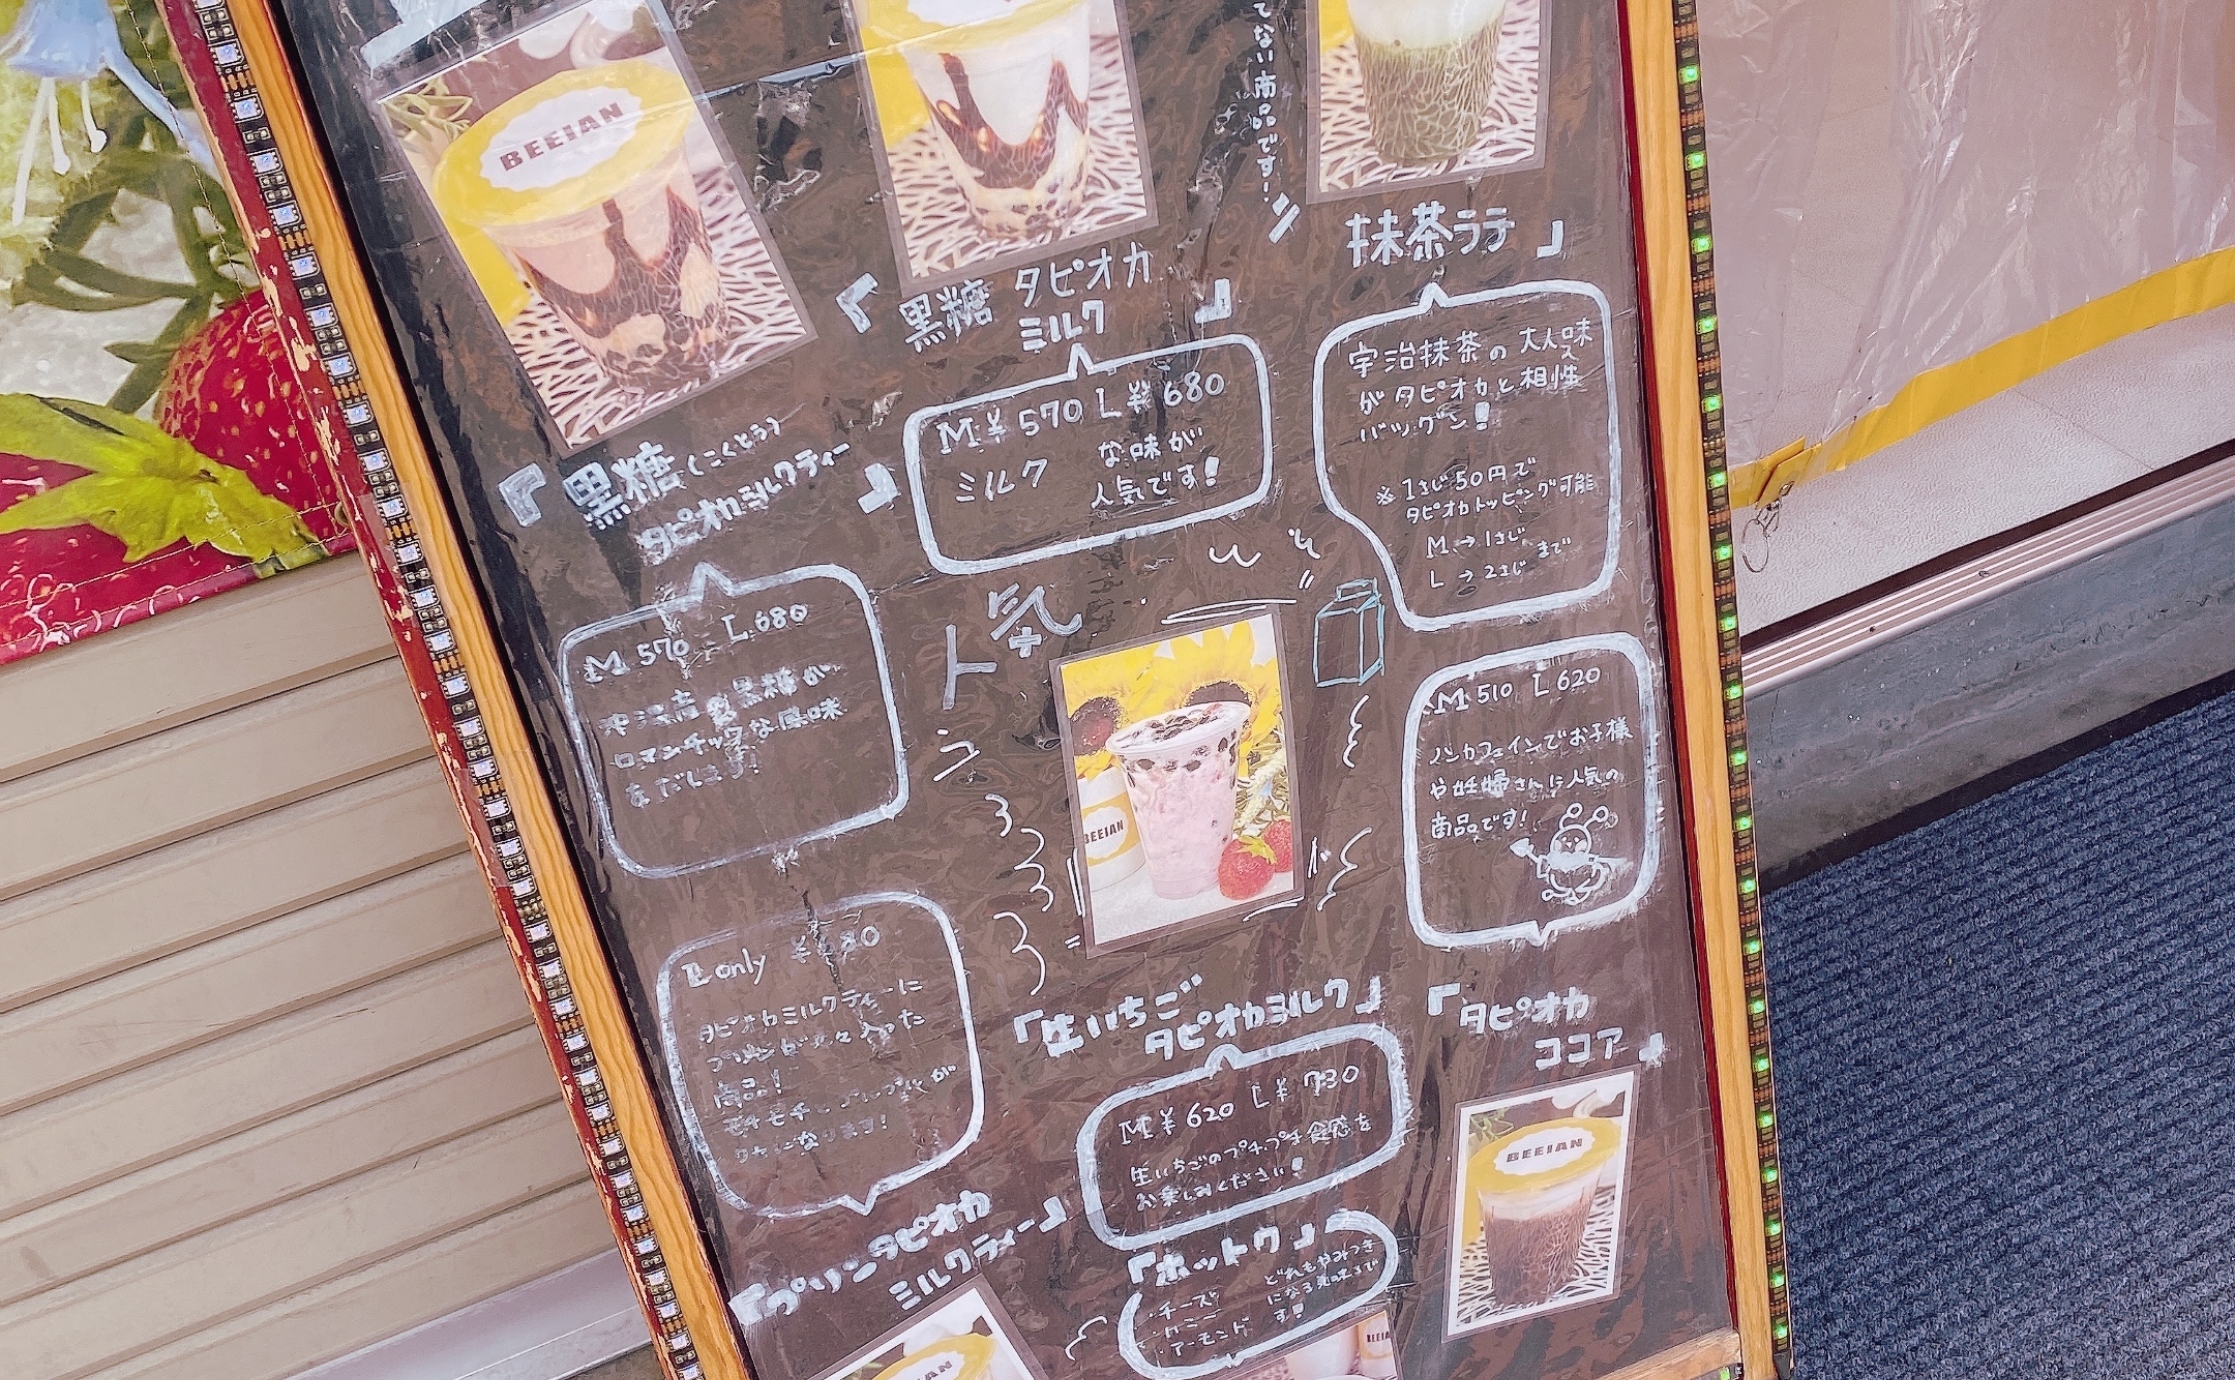 BEEIAN
てない商品です!
『黒糖(こくとう)
タピオカミルクティー』
M 570 L 680
沖縄産黒糖が
ロマンチックな風味
をだします!
『黒糖 タピオカ
ミルク』
M¥570 L¥680
ミルク
な味が
人気です!
抹茶ラテ』
宇治抹茶の大人味
がタピオカと相性
バツグン!
※1さじ50円で
タピオカトッピング可能
M→1さじ
L→2さじ まで
人気
BEEIAN
『生いちご
タピオカミルク』
M¥620 L¥730
生いちごのプチプチ食感を
お楽しみください!
M 510 L 620
ノンカフェインでお子様
や妊婦さんに人気の
商品です!
『タピオカ
ココア』
BEEIAN
L only
タピオカミルクティーに
プリンが入った
商品!
モチモチ
になります!
『プリンタピオカ
ミルクティー』
BEEIAN
『ホットク』
・チーズ
・ハニー
・アーモンド
どれもやみつき
になる美味さで
す!
BEEIAN